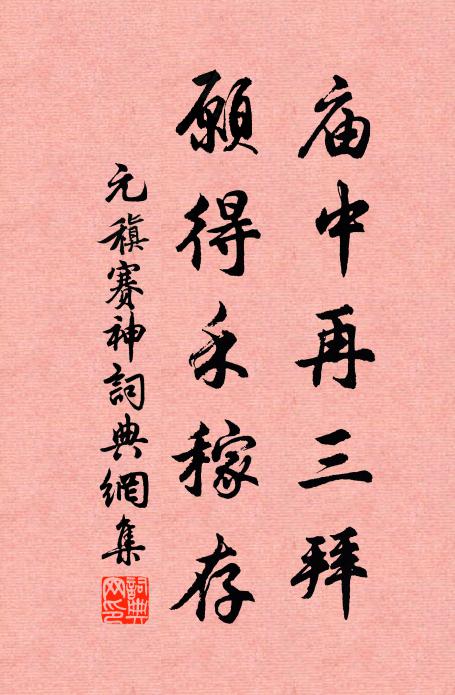 庙中再三拜
願得禾稼存
元稹賽神詞典網集
詞典网印